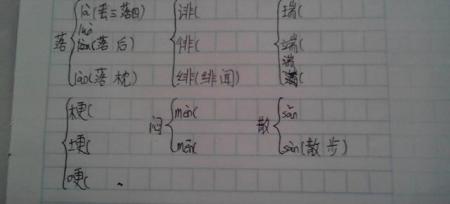 là(丢三落四) 诽( 瑞(
落 luò
luò(落后) 悱( 端(
湍
lào(落枕) 绯(绯闻)
梗( mēn( sǎn
埂( 闷 散
哽( mèn( sàn(散步)